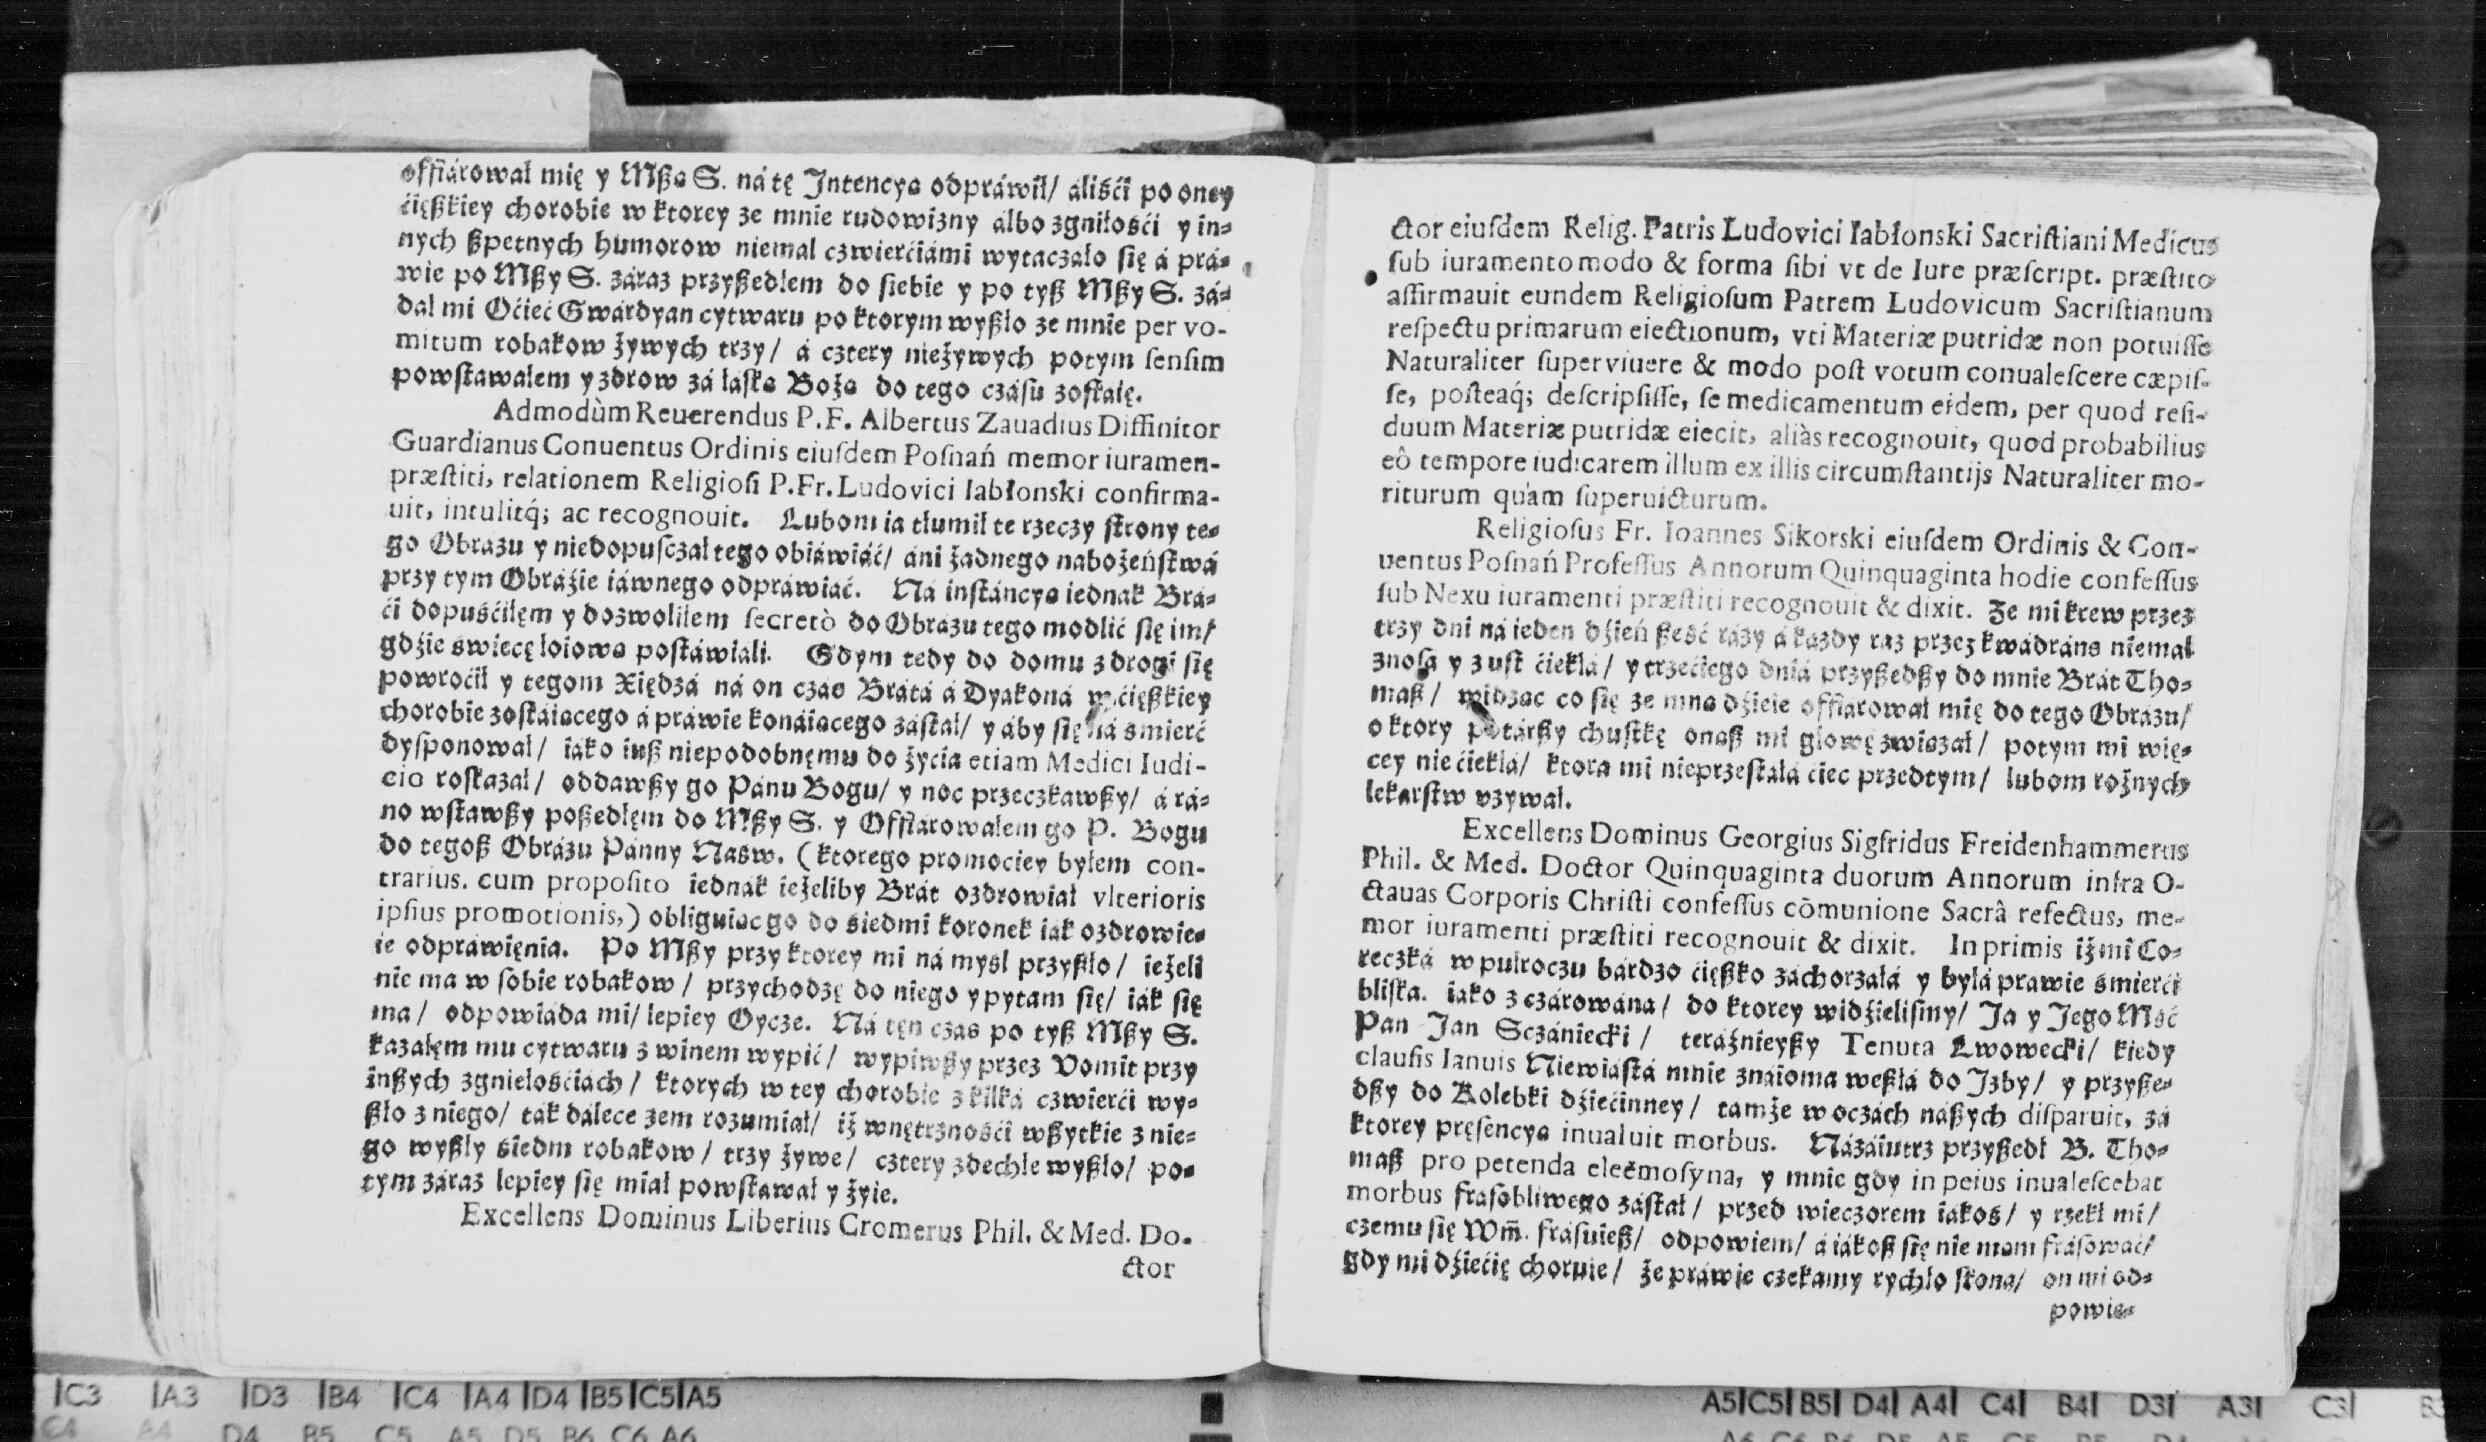 offiárował mię y Mßą S. ná tę Jntencyą odpráwił/ áliśći po oney
ćięßkiey chorobie w ktorey ze mnie rudowizny álbo zgniłośći y in=
nych ßpetnych humorow niemal czwierćiámi wytaczało się á prá=
wie po Mßy S. záraz przyßedłem do siebie y po tyß Mßy S. zá=
dał mi Oćiec Gwárdyan cytwaru po ktorym wyßło ze mnie per vo-
mitum robakow żywych trzy/ á cztery nieżywych potym sensim
powstawałem y zdrow zá łáską Bożą do tego czásu zostáię.
Admodùm Reuerendus P.F. Albertus Zauadius Diffinitor
Guardianus Conuentus Ordinis eiuſdem Poſnań memor iuramen-
præſtiti, relationem Religioſi P.Fr. Ludovici Iabłonski confirma-
uit, intulitq́; ac recognouit. Lubom ia tłumił te rzeczy strony te=
go Obrázu y niedopuſczał tego obiáwiáć/ áni żadnego nabożeństwá
przy tym Obráźie iáwnego odpráwiáć. Ná instáncyą iednak Brá=
ći dopuśćiłęm y dozwoliłem ſecretò do Obrázu tego modlić się im/
gdźie świecę łoiową postáwiali. Gdym tedy do domu z drogi się
powroćił y tegom Xiędzá ná on czás Brátá á Dyakoná w ćięßkiey
chorobie zostáiącego á práwie konáiącego zástał/ y áby się ná śmierć
dyſponował/ iáko iuß niepodobnęmu do żyćia etiam Medici Iudi-
cio roſkazał/ oddawßy go Pánu Bogu/ y noc przeczkawßy/ á rá=
no wstawßy poßedłęm do Mßy S. y Offiárowałem go P. Bogu
do tegoß Obrázu Pánny Naśw. (ktorego promociey byłem con-
trarius. cum propoſito iednák ieżeliby Brát ozdrowiał vlterioris
ipſius promotionis,) obliguiąc go do śiedmi koronek iák ozdrowie=
ie odpráwięnia. Po Mßy przy ktorey mi ná myśl przyßło/ ieżeli
nie ma w sobie robakow/ przychodzę do niego y pytam się/ iák się
ma/ odpowiáda mi/ lepiey Oycze. Ná tęn czás po tyß Mßy S.
kazałęm mu cytwaru z winem wypić/ wypiwßy przez Vomit przy
inßych zgniełośćiách/ ktorych w tey chorobie z kilká czwierći wy=
ßło z niego/ ták dálece żem rozumiał/ iż wnętrznośći wßytkie z nie=
go wyßły śiedm robakow/ trzy żywe/ cztery zdechłe wyßło/ po=
tym záraz lepiey się miał powstawał y żyie.
Excellens Dominus Liberius Cromerus Phil. & Med. Do-
ctor
ctor eiuſdem Relig. Patris Ludovici Iabłonski Sacriſtiani Medicus
ſub iuramento modo & forma ſibi vt de Iure præſcript. præſtito
affirmauit eundem Religioſum Patrem Ludovicum Sacriſtianum
reſpectu primarum eiectionum, vti Materiæ putridæ non potuiſſe
Naturaliter ſuperviuere & modo poſt votum conualeſcere cæpiſ-
ſe, poſteaq́; deſcripſiſſe, ſe medicamentum eidem, per quod reſi-
duum Materiæ putridæ eiecit, aliàs recognouit, quod probabilius
eô tempore iudicarem illum ex illis circumſtantijs Naturaliter mo-
riturum quàm ſuperuicturum.
Religioſus Fr. Ioannes Sikorski eiuſdem Ordinis & Con-
uentus Poſnań Profeſſus Annorum Quinquaginta hodie confeſſus
ſub Nexu iuramenti præſtiti recognouit & dixit. Że mi krew przez
trzy dni ná ieden dźień ßeść rázy á káżdy raz przez kwádráns niemal
znosá y z ust ćiekłá/ y trzećiego dniá przyßedßy do mnie Brát Tho=
maß/ widząc co się ze mną dźieie offiarował mię do tego Obrázu/
o ktory potárßy chustkę onąß mi głowę związał/ potym mi wię=
cey niećiekłá/ ktora mi nieprzestáłá ćiec przedtym/ lubom rożnych
lekarstw vżywał.
Excellens Dominus Georgius Sigfridus Freidenhammerus
Phil. & Med. Doctor Quinquaginta duorum Annorum infra O-
ctauas Corporis Chriſti confeſſus cōmunione Sacrâ refectus, me-
mor iuramenti præſtiti recognouit & dixit. In primis iż mi Co=
reczká w pułroczu bárdzo ćięßko záchorzáłá y byłá práwie śmierći
bliſka. iáko z czárowána/ do ktorey widźieliſmy/ Ja y Jego Mść
Pan Jan Sczániecki/ teráźnieyßy Tenuta Lwowecki/ kiedy
clauſis Ianuis Niewiástá mnie znáioma weßłá do Jzby/ y przyße=
dßy do Kolebki dźiećinney/ támże w oczách náßych diſparuit, zá
ktorey pręſencyą inualuit morbus. Názáiutrz przyßedł B. Tho=
maß pro petenda eleęmoſyna, y mnie gdy in peius inualeſcebat
morbus fráſobliwego zástał/ przed wieczorem iákoś/ y rzekł mi/
czemu się Wm̃. fráſuieß/ odpowiem/ á iákoß się nie mam fráſowáć/
gdy mi dźiećię choruie/ że práwie czekamy rychło skona/ on mi od=
powie=
C3 A3 D3 B4 C4 A4 D4 B5 C5 A5
A5 C5 B5 D4 A4 C4 B4 D3 A3 C3
C4 A4 D4 B5 C5 A5 D5 B6 C6 A6